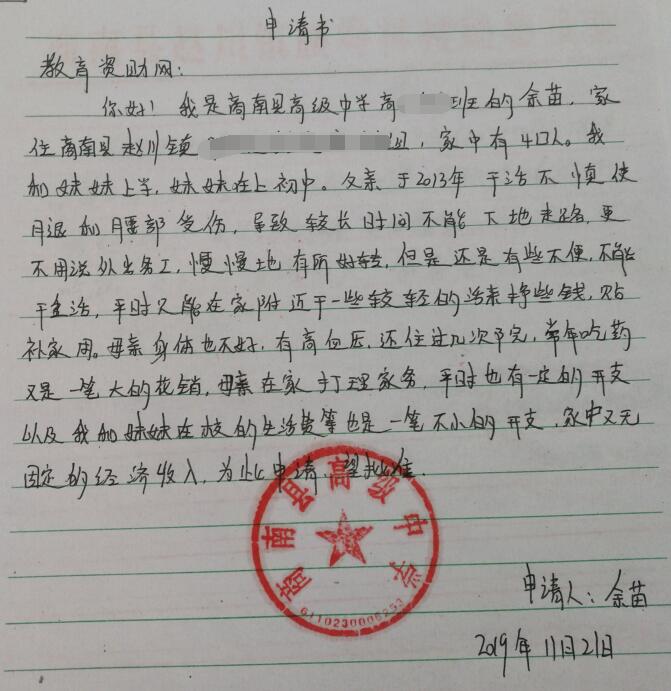 申请书
教育资助网:
你好！我是商南县高级中学高 班的余苗，家
住商南县赵川镇 组，家中有4口人。我
和妹妹上学，妹妹在上初中。父亲于2013年干活不慎使
腿和腰部受伤，导致较长时间不能下地走路，更
不用说外出务工，慢慢地有所好转，但是还是有些不便，不能
干重活，平时只能在家附近干一些较轻的活来挣些钱，贴
补家用。母亲身体也不好，有高血压，还住过几次院，常年吃药
又是一笔大的花销，母亲在家打理家务，平时也有一定的开支
以及我和妹妹在校的生活费等也是一笔不小的开支，家中又无
固定的经济收入，为此申请，望批准.
商南县高级中学
6110230006253
申请人：余苗
2019年11月21日